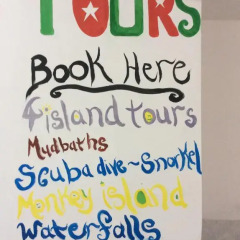 TOURS
BOOK HERE
4 island tours
Mudbaths
Scuba dive~Snorkel
Monkey island
Waterfalls